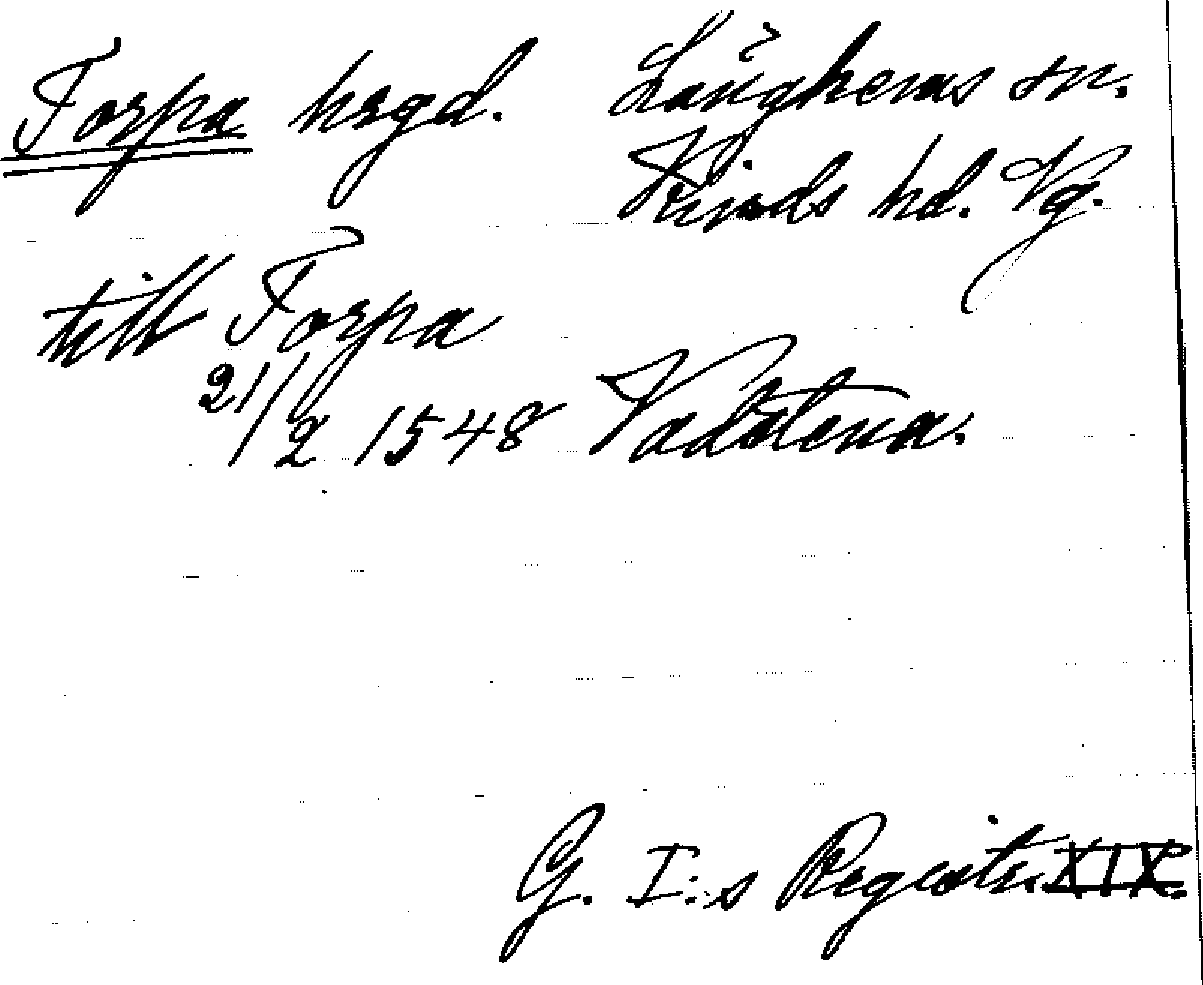 Torpa hrgd. Långhems sn.
Kinds hd. Vg.
till Torpa
21/2 1548 Vadstena.
G. I:s Registr. XIX.